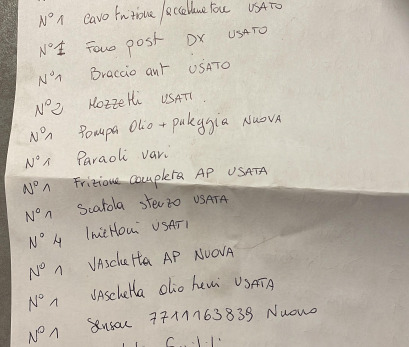 N° 1 Cavo frizione/acceleratore USATO
N° 1 Fono post DX USATO
N° 1 Braccio ant USATO
N° 2 Mozzetti USATI.
N° 1 Pompa Olio + puleggia NUOVA
N° 1 Paraoli vari
N° 1 Frizione completa AP USATA
N° 1 Scatola sterzo USATA
N° 4 Iniettori USATI
N° 1 VAschetta AP NUOVA
N° 1 VAschetta olio freni USATA
N° 1 Sensore 7711163839 Nuovo